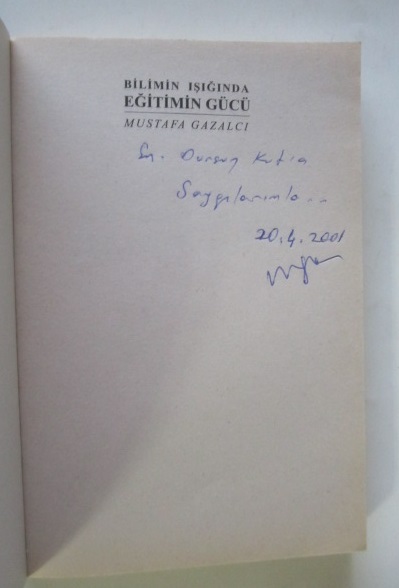 BİLİMİN IŞIĞINDA
EĞİTİMİN GÜCÜ
MUSTAFA GAZALCI
Sn. Dursun Kut'a
Saygılarımla..
20.4.2001